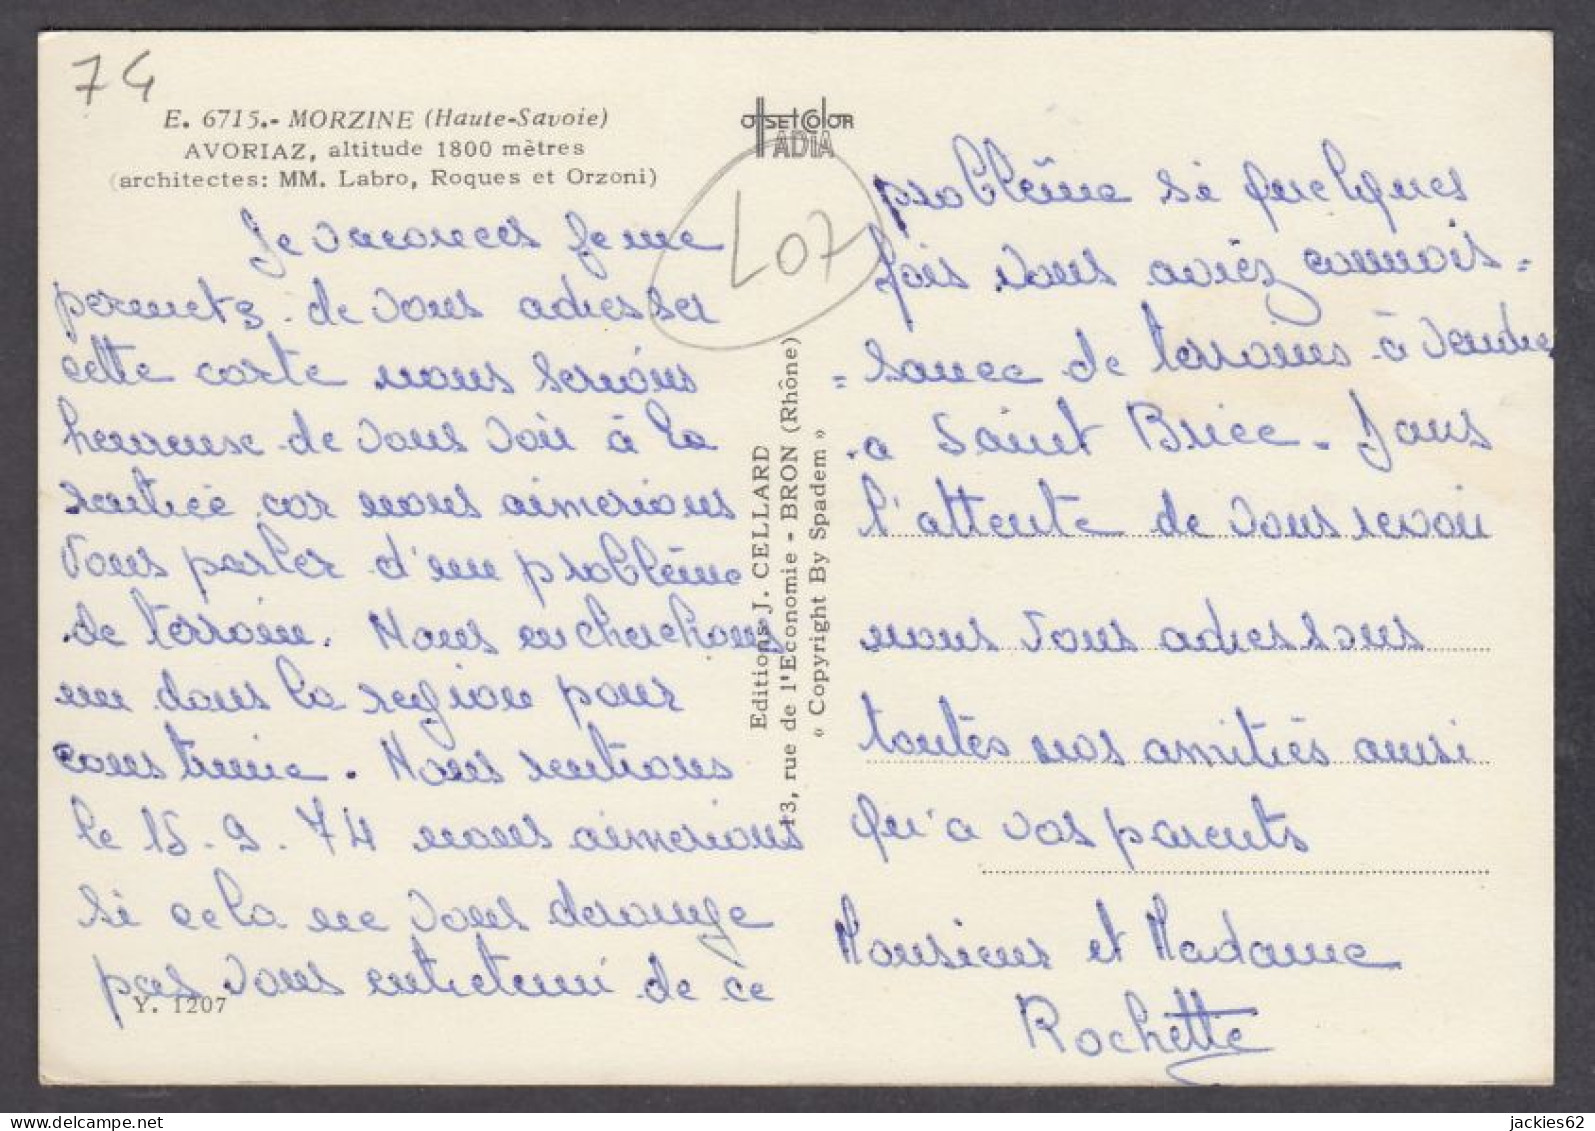 74
E. 6715.- MORZINE (Haute-Savoie)
AVORIAZ, altitude 1800 mètres
(architectes: MM. Labro, Roques et Orzoni)
OffsetColor
ADIA
L07
Je vacances je me
permets de vous adresser
cette carte nous serions
heureuse de vous voir à la
rentrée car nous aimerions
vous parler d'un problème
de terrain. Nous en cherchons
un dans la region pour
construire. Nous rentrons
le 15.9.74 nous aimerions
si cela ne vous derange
pas vous entretenir de ce
Y. 1207
Editions J. CELLARD
13, rue de l'Economie - BRON (Rhône)
« Copyright By Spadem »
problème si quelques
fois vous aviez connois=
=sance de terrains à vendre
a Saint Brice. Dans
l'attente de vous revoir
nous vous adressons
toutes nos amitiés aussi
qu'a vos parents
Monsieur et Madame
Rochette
jackies62